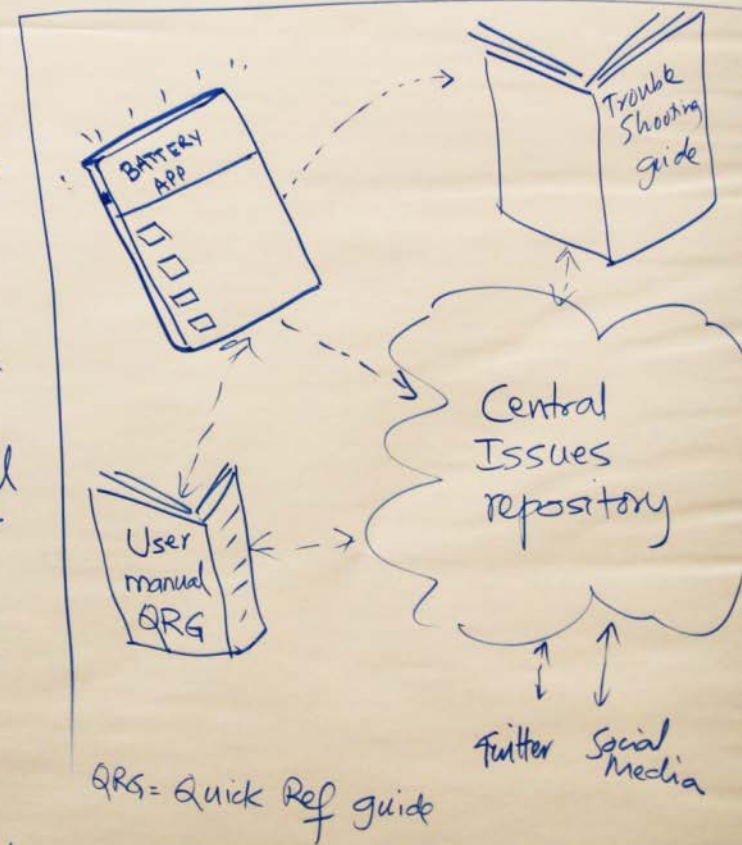 BATTERY
APP
Trouble
Shooting
guide
Central
Issues
repository
User
manual
QRG
Twitter
Social
Media
QRG = Quick Ref guide